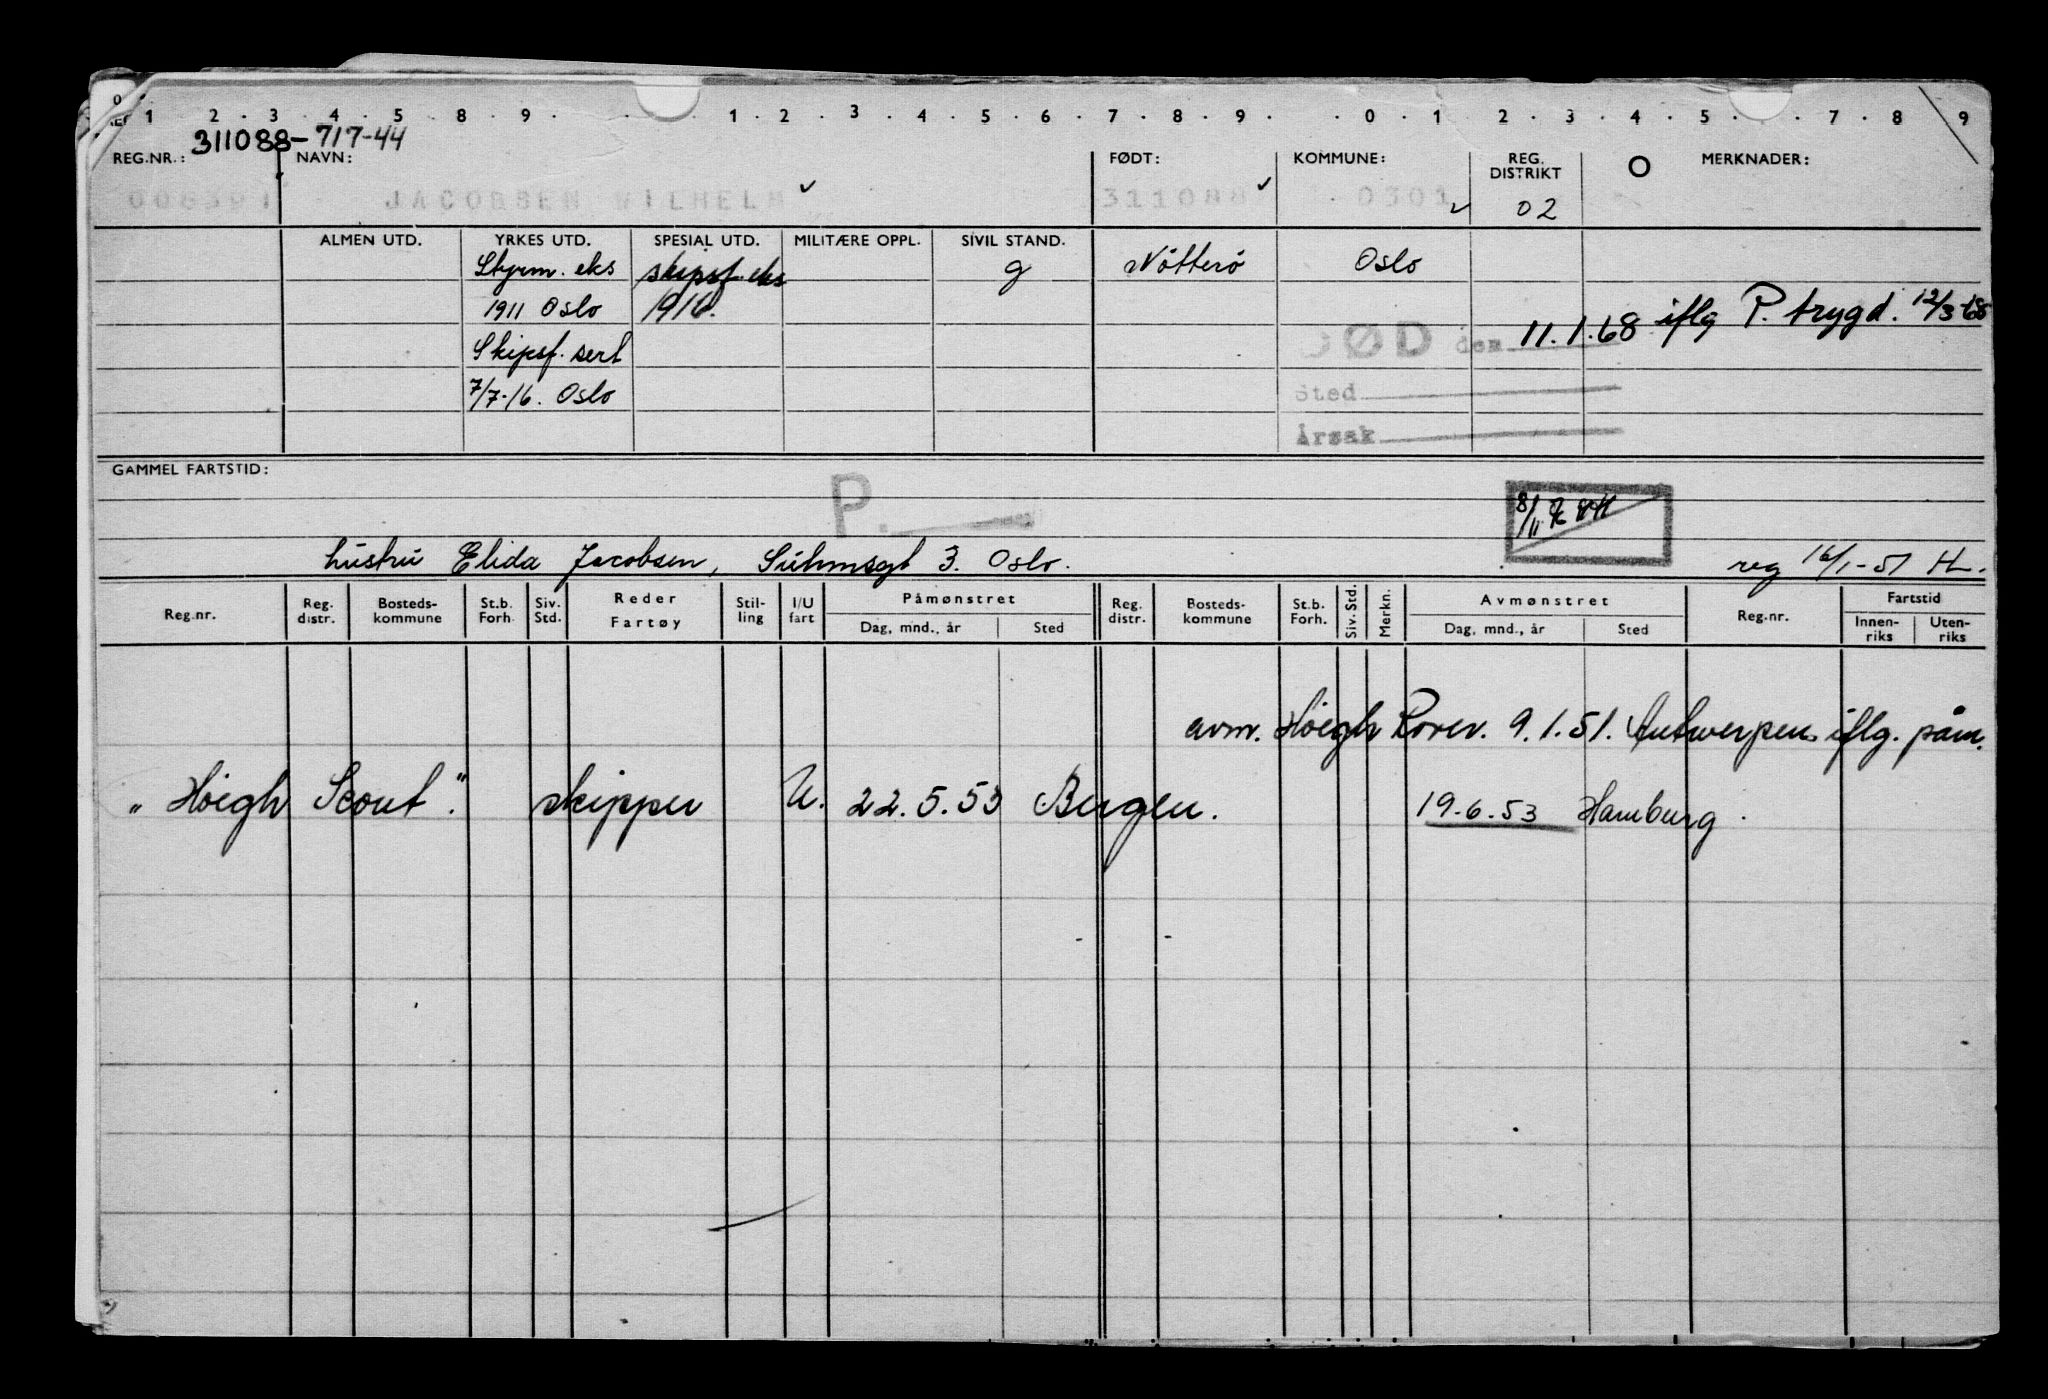 0 1 . 2 . 3 . 4 . 5 . 8 . 9 . . 1 . 2 . 3 . 4 . 5 . 6 . 7 . 8 . 9 . . 0 . 1 . 2 . 3 . 4 . 5 . . 7 . 8 9
311088-717-44
REG.NR.: NAVN: FØDT: KOMMUNE: REG. DISTRIKT O MERKNADER:
JACOBSEN WILHELM ✓ 311088 ✓ 0301 ✓ 02
ALMEN UTD. YRKES UTD. SPESIAL UTD. MILITÆRE OPPL. SIVIL STAND.
Styrm. eks skipsf. eks g Nötterö Oslo
1911 Oslo 1916.
DØD den 11.1.68 iflg P. trygd. 12/3-68
Skipsf. sert
7/7-16. Oslo
Sted
Årsak
GAMMEL FARTSTID:
P.
8/11
hustru Elida Jacobsen, Suhmsgt 3. Oslo. reg 16/1-51 H.
Reg.nr. Reg. distr. Bosteds- kommune St.b. Forh. Siv. Std. Reder Fartøy Stil- ling I/U fart Påmønstret Dag, mnd., år Sted Reg. distr. Bosteds- kommune St.b. Forh. Siv. Std. Merkn. Avmønstret Dag, mnd., år Sted Reg.nr. Fartstid Innen- riks Uten- riks
avm. Höegh Rover. 9.1.51. Antwerpen iflg. påm.
"Höegh Scout". skipper U. 22.5.53 Bergen. 19.6.53 Hamburg.